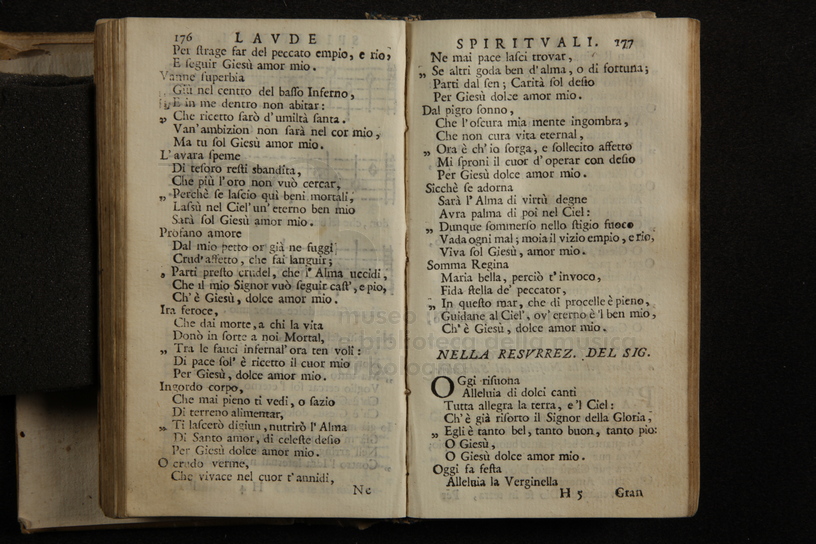 176 LAVDE
Per ſtrage far del peccato empio, e rio,
E ſeguir Gieſù amor mio.
Vanne ſuperbia
Giù nel centro del baſſo Inferno,
E in me dentro non abitar:
„ Che ricetto farò d'umiltà ſanta.
Van' ambizion non farà nel cor mio,
Ma tu ſol Gieſù amor mio.
L'avara ſpeme
Di teſoro reſti sbandita,
Che più l'oro non vuò cercar,
„ Perchè ſe laſcio quì beni mortali,
Laſsù nel Ciel' un' eterno ben mio
Sarà ſol Gieſù amor mio.
Profano amore
Dal mio petto or già ne fuggi
Crud' affetto, che fai languir;
„ Parti preſto crudel, che l'Alma uccidi,
Che il mio Signor vuò ſeguir caſt', e pio,
Ch' è Gieſù, dolce amor mio.
Ira feroce,
Che dai morte, a chi la vita
Donò in ſorte a noi Mortal,
„ Tra le fauci infernal' ora ten voli:
Di pace ſol' è ricetto il cuor mio
Per Gieſù, dolce amor mio.
Ingordo corpo,
Che mai pieno ti vedi, o ſazio
Di terreno alimentar,
„ Ti laſcerò digiun, nutrirò l'Alma
Di Santo amor, di celeſte deſio
Per Gieſù dolce amor mio.
O crudo verme,
Che vivace nel cuor t'annidi,
Ne
SPIRITVALI. 177
Ne mai pace laſci trovar,
„ Se altri goda ben d'alma, o di fortuna;
Parti dal ſen; Carità ſol deſio
Per Gieſù dolce amor mio.
Dal pigro ſonno,
Che l'oſcura mia mente ingombra,
Che non cura vita eternal,
„ Ora è ch' io ſorga, e ſollecito affetto
Mi ſproni il cuor d'operar con deſio
Per Gieſù dolce amor mio.
Sicchè ſe adorna
Sarà l'Alma di virtù degne
Avra palma di poi nel Ciel:
„ Dunque ſommerſo nello ſtigio fuoco
Vada ogni mal; moia il vizio empio, e rio,
Viva ſol Gieſù, amor mio.
Somma Regina
Maria bella, perciò t'invoco,
Fida ſtella de' peccator,
„ In queſto mar, che di procelle è pieno,
Guidane al Ciel', ov' eterno è 'l ben mio,
Ch' è Gieſù, dolce amor mio.
NELLA RESVRREZ. DEL SIG.
OGgi riſuona
Alleluia di dolci canti
Tutta allegra la terra, e 'l Ciel:
Ch' è già riſorto il Signor della Gloria,
„ Egli è tanto bel, tanto buon, tanto pio:
O Gieſù,
O Gieſù dolce amor mio.
Oggi fa feſta
Alleluia la Verginella
H 5 Gran